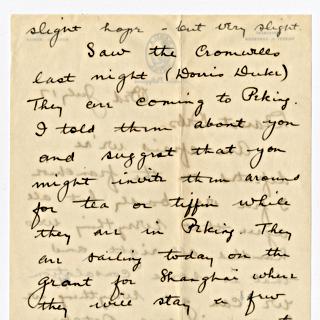 slight hope - but very slight.
Saw the Cromwells
last night (Doris Duke)
They are coming to Peking.
I told them about you
and suggest that you
might invite them around
for tea or tiffin while
they are in Peking. They
are sailing today on the
Grant for Shanghai where
they will stay a few